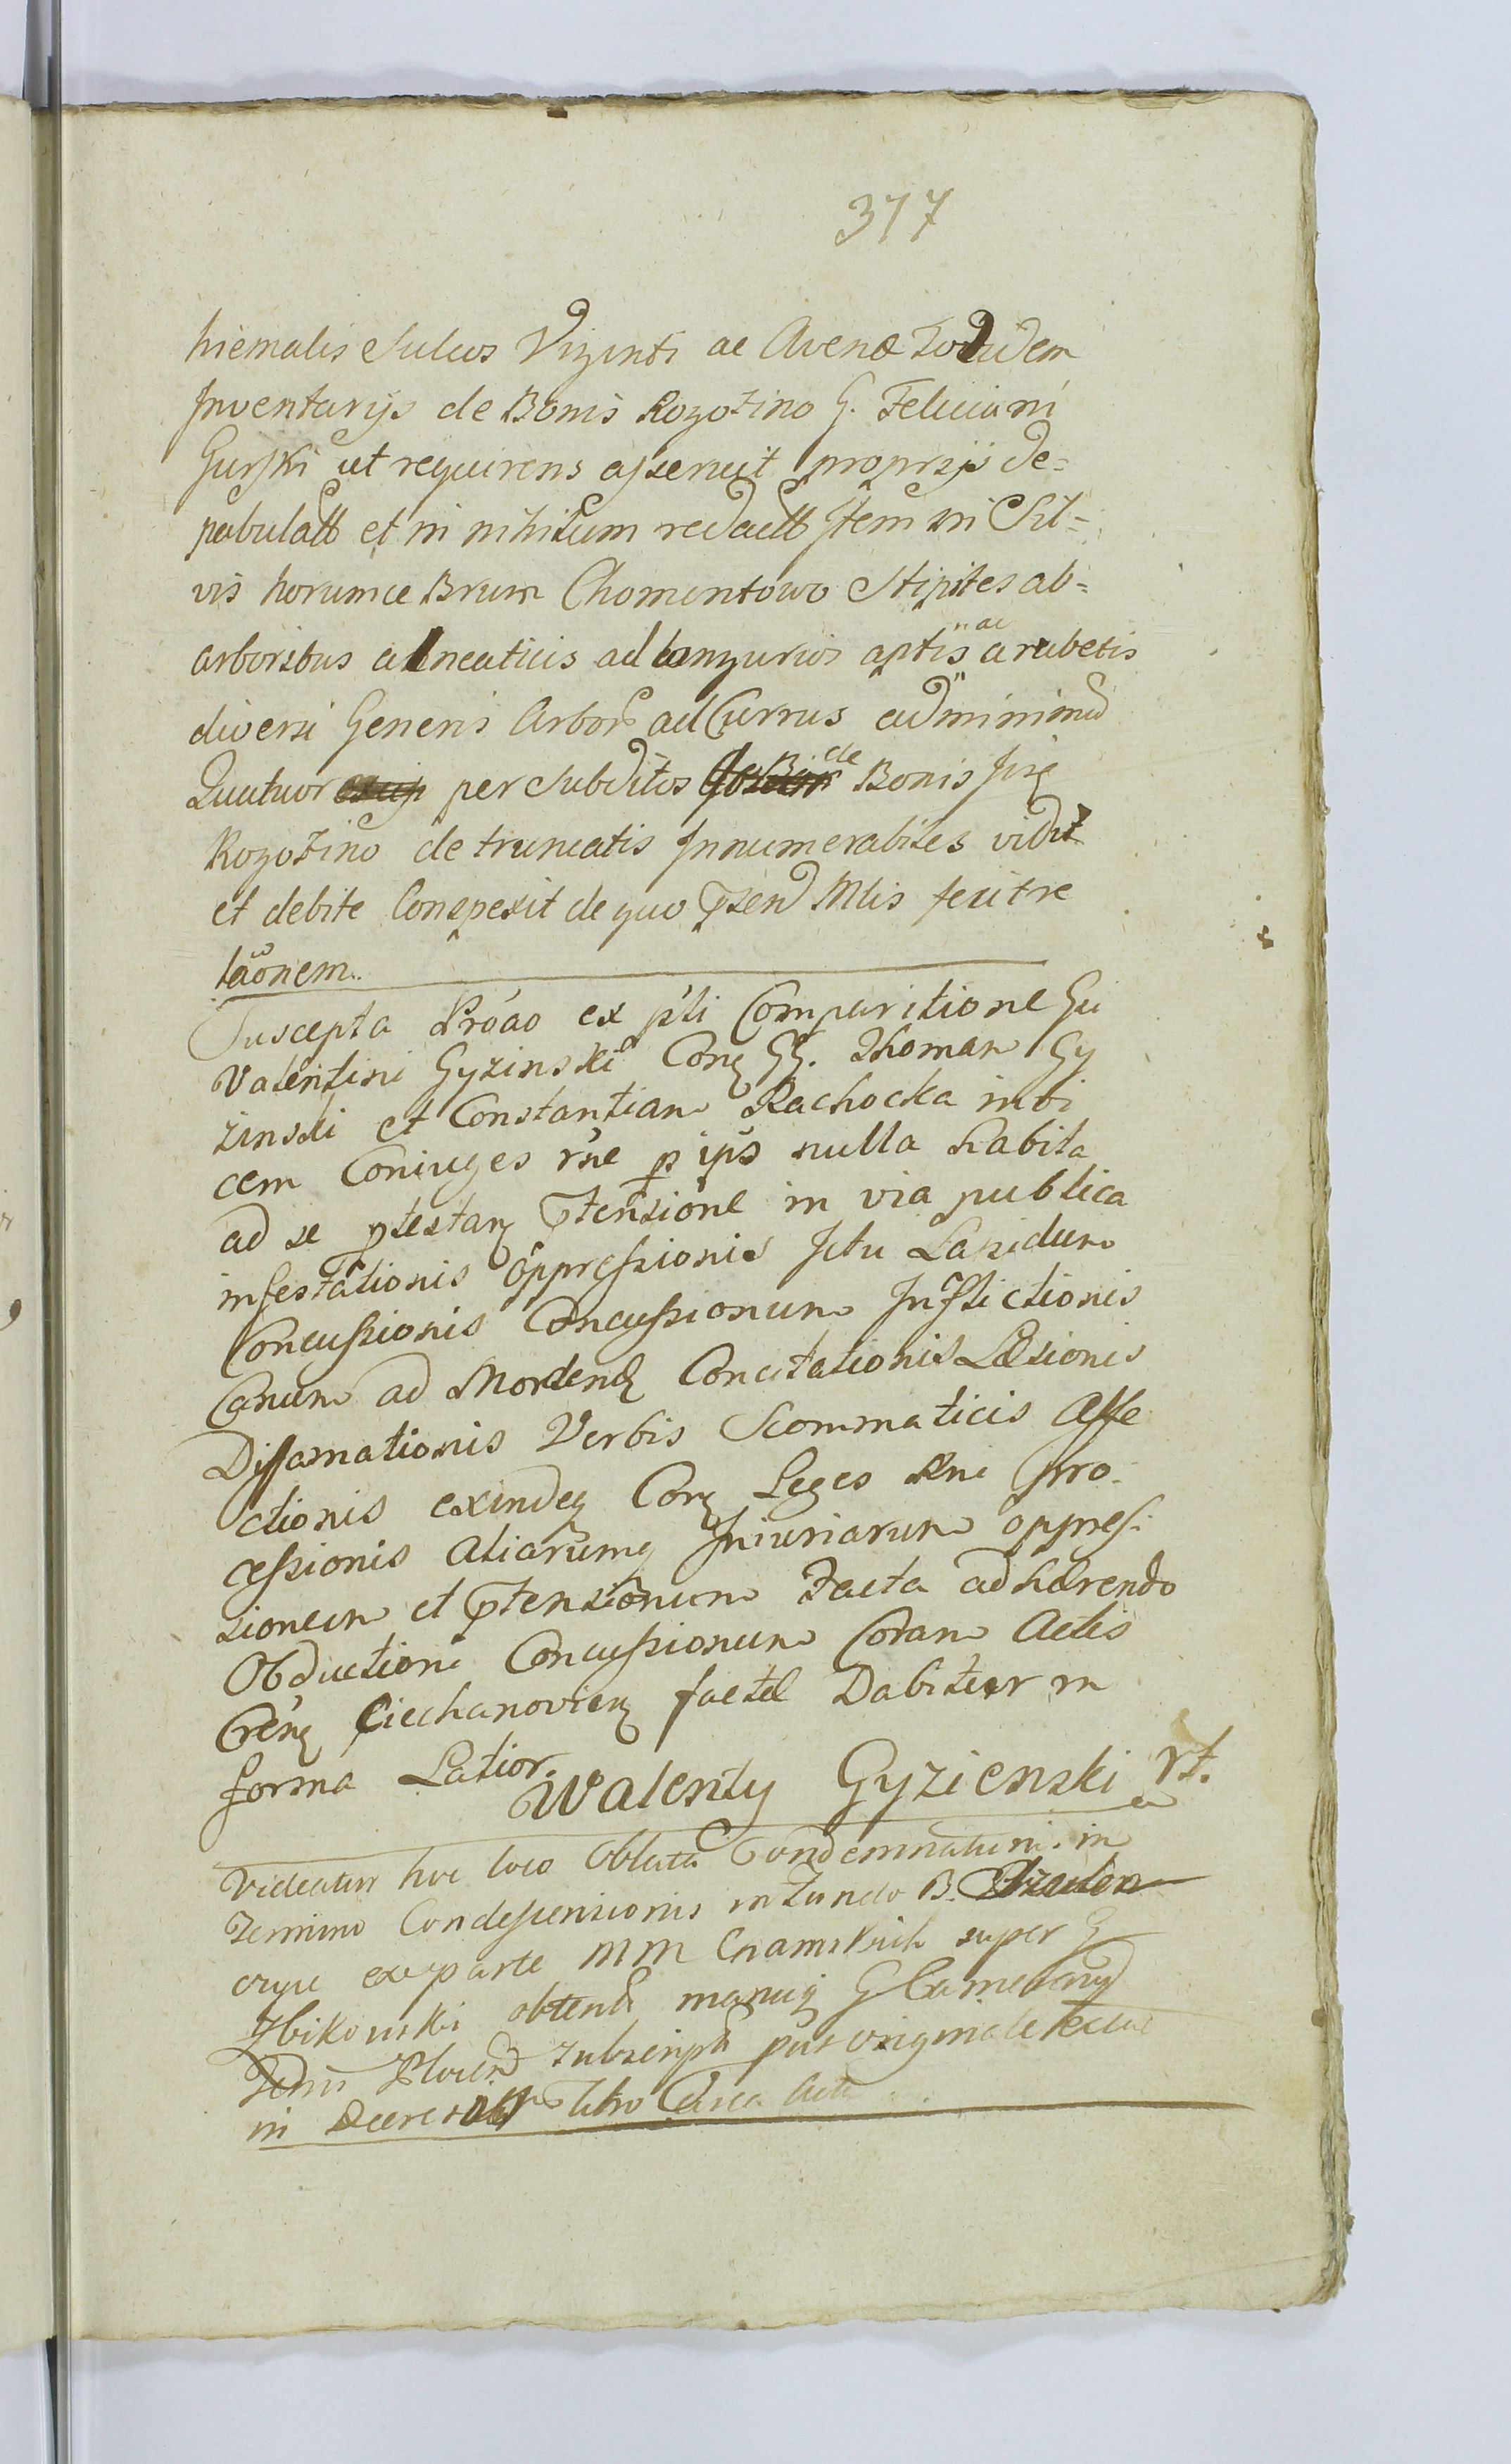 377
hiemalis Sulcos Viginti ac Avenæ Totidem
Inventarijs de Bonis Rogozino G. Feliciani
Gurski ut requirens asseruit proprijs de=
pabulatt et in nihilum redactt Item in Sil=
vis horumce Brum Chomentowo Stipites ab=
arboribus alneaticis ad longurios aptis ac a rubetis
diversi Generis Arbor ad Currus ad minimũ
Quatuor per Subditos de Bonis
Rogozino de truncatis Innumerabiles vidit
et debite Conspexit de quo pñsen Mlis fecit re
lãonem.
Suscepta Prõao ex pñti Comparitione Gñi
Valentini Gyzinski Conẹ GG. Thoman Gy
zinski et Constantiam Rachocka invi
cem Coniuges rñe p ipš nulla habita
ad se ptestanẹ ptensione in via publica
infestationis oppressionis Ictu Lapidum
Concussionis Concussionum Inflictionis
Canum ad Mordendẹ Concitationis Læsionis
Diffamationis Verbis Scommaticis Affe
ctionis exindeq Conẹ Leges Rni Pro-
cessionis Aliarumq Iniuriarum oppres-
sionum et ptensionum Facta adhærendo
Obductioni Concussionum Coram Actis
Crẽnẹ Ciechanovienẹ factæ Dabitur in
forma Latior.
Walenty Gyzienski rt.
Videatur hoc loco Oblata Condemnatum. in
Termino Condescensionis in Fundo B.
orque ex parte MM super G
Zbikowski obtentẹ manuq G
subscriptẹ originale
in